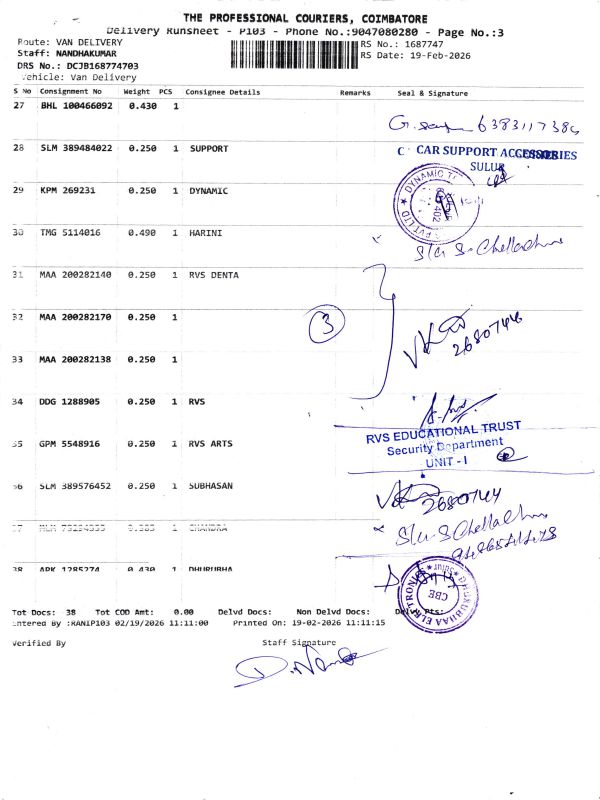 THE PROFESSIONAL COURIERS, COIMBATORE
Delivery Runsheet - P103 - Phone No.:9047080280 - Page No.:3
Route: VAN DELIVERY
RS No.: 1687747
Staff: NANDHAKUMAR
RS Date: 19-Feb-2026
DRS No.: DCJB168774703
Vehicle: Van Delivery
S No Consignment No Weight PCS Consignee Details Remarks Seal & Signature
27 BHL 100466092 0.430 1
28 SLM 389484022 0.250 1 SUPPORT
CAR SUPPORT ACCESSORIES
SULUR
29 KPM 269231 0.250 1 DYNAMIC
30 TMG 5114016 0.490 1 HARINI
31 MAA 200282140 0.250 1 RVS DENTA
32 MAA 200282170 0.250 1
3
2680744
33 MAA 200282138 0.250 1
34 DDG 1288905 0.250 1 RVS
RVS EDUCATIONAL TRUST
Security Department
UNIT - I
35 GPM 5548916 0.250 1 RVS ARTS
36 SLM 389576452 0.250 1 SUBHASAN
2680744
37 CHANDRA
38 APK 1285774 0.430 1 DHURUBHA
DHURUBHAA ELECTRONICS
CBE
Tot Docs: 38 Tot COD Amt: 0.00 Delvd Docs: Non Delvd Docs: Delvd Pts:
Entered By :RANIP103 02/19/2026 11:11:00 Printed On: 19-02-2026 11:11:15
Verified By Staff Signature